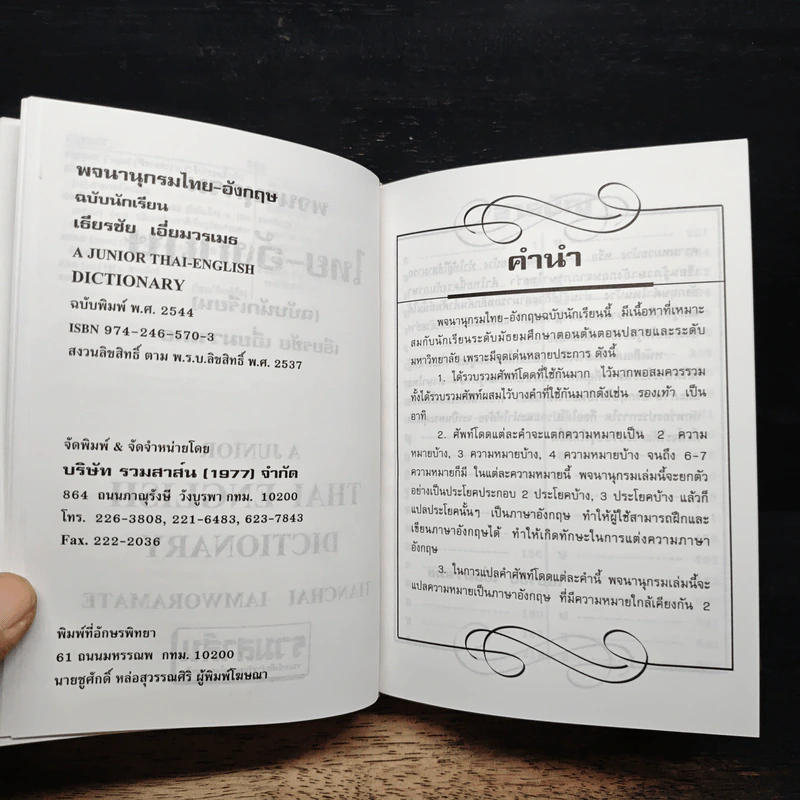 พจนานุกรมไทย-อังกฤษ
ฉบับนักเรียน
เธียรชัย เอี่ยมวรเมธ
A JUNIOR THAI-ENGLISH
DICTIONARY
ฉบับพิมพ์ พ.ศ. 2544
ISBN 974-246-570-3
สงวนลิขสิทธิ์ ตาม พ.ร.บ.ลิขสิทธิ์ พ.ศ. 2537
จัดพิมพ์ & จัดจำหน่ายโดย
บริษัท รวมสาส์น (1977) จำกัด
864 ถนนภาณุรังษี วังบูรพา กทม. 10200
โทร. 226-3808, 221-6483, 623-7843
Fax. 222-2036
พิมพ์ที่อักษรพิทยา
61 ถนนมหรรณพ กทม. 10200
นายชูศักดิ์ หล่อสุวรรณศิริ ผู้พิมพ์โฆษณา
คำนำ
พจนานุกรมไทย-อังกฤษฉบับนักเรียนนี้ มีเนื้อหาที่เหมาะ
สมกับนักเรียนระดับมัธยมศึกษาตอนต้นตอนปลายและระดับ
มหาวิทยาลัย เพราะมีจุดเด่นหลายประการ ดังนี้
1. ได้รวบรวมศัพท์โดดที่ใช้กันมาก ไว้มากพอสมควรรวม
ทั้งได้รวบรวมศัพท์ผสมไว้บางคำที่ใช้กันมากดังเช่น รองเท้า เป็น
อาทิ
2. ศัพท์โดดแต่ละคำจะแตกความหมายเป็น 2 ความ
หมายบ้าง, 3 ความหมายบ้าง, 4 ความหมายบ้าง จนถึง 6-7
ความหมายก็มี ในแต่ละความหมายนี้ พจนานุกรมเล่มนี้จะยกตัว
อย่างเป็นประโยคประกอบ 2 ประโยคบ้าง, 3 ประโยคบ้าง แล้วก็
แปลประโยคนั้นๆ เป็นภาษาอังกฤษ ทำให้ผู้ใช้สามารถฝึกและ
เขียนภาษาอังกฤษได้ ทำให้เกิดทักษะในการแต่งความภาษา
อังกฤษ
3. ในการแปลคำศัพท์โดดแต่ละคำนี้ พจนานุกรมเล่มนี้จะ
แปลความหมายเป็นภาษาอังกฤษ ที่มีความหมายใกล้เคียงกัน 2